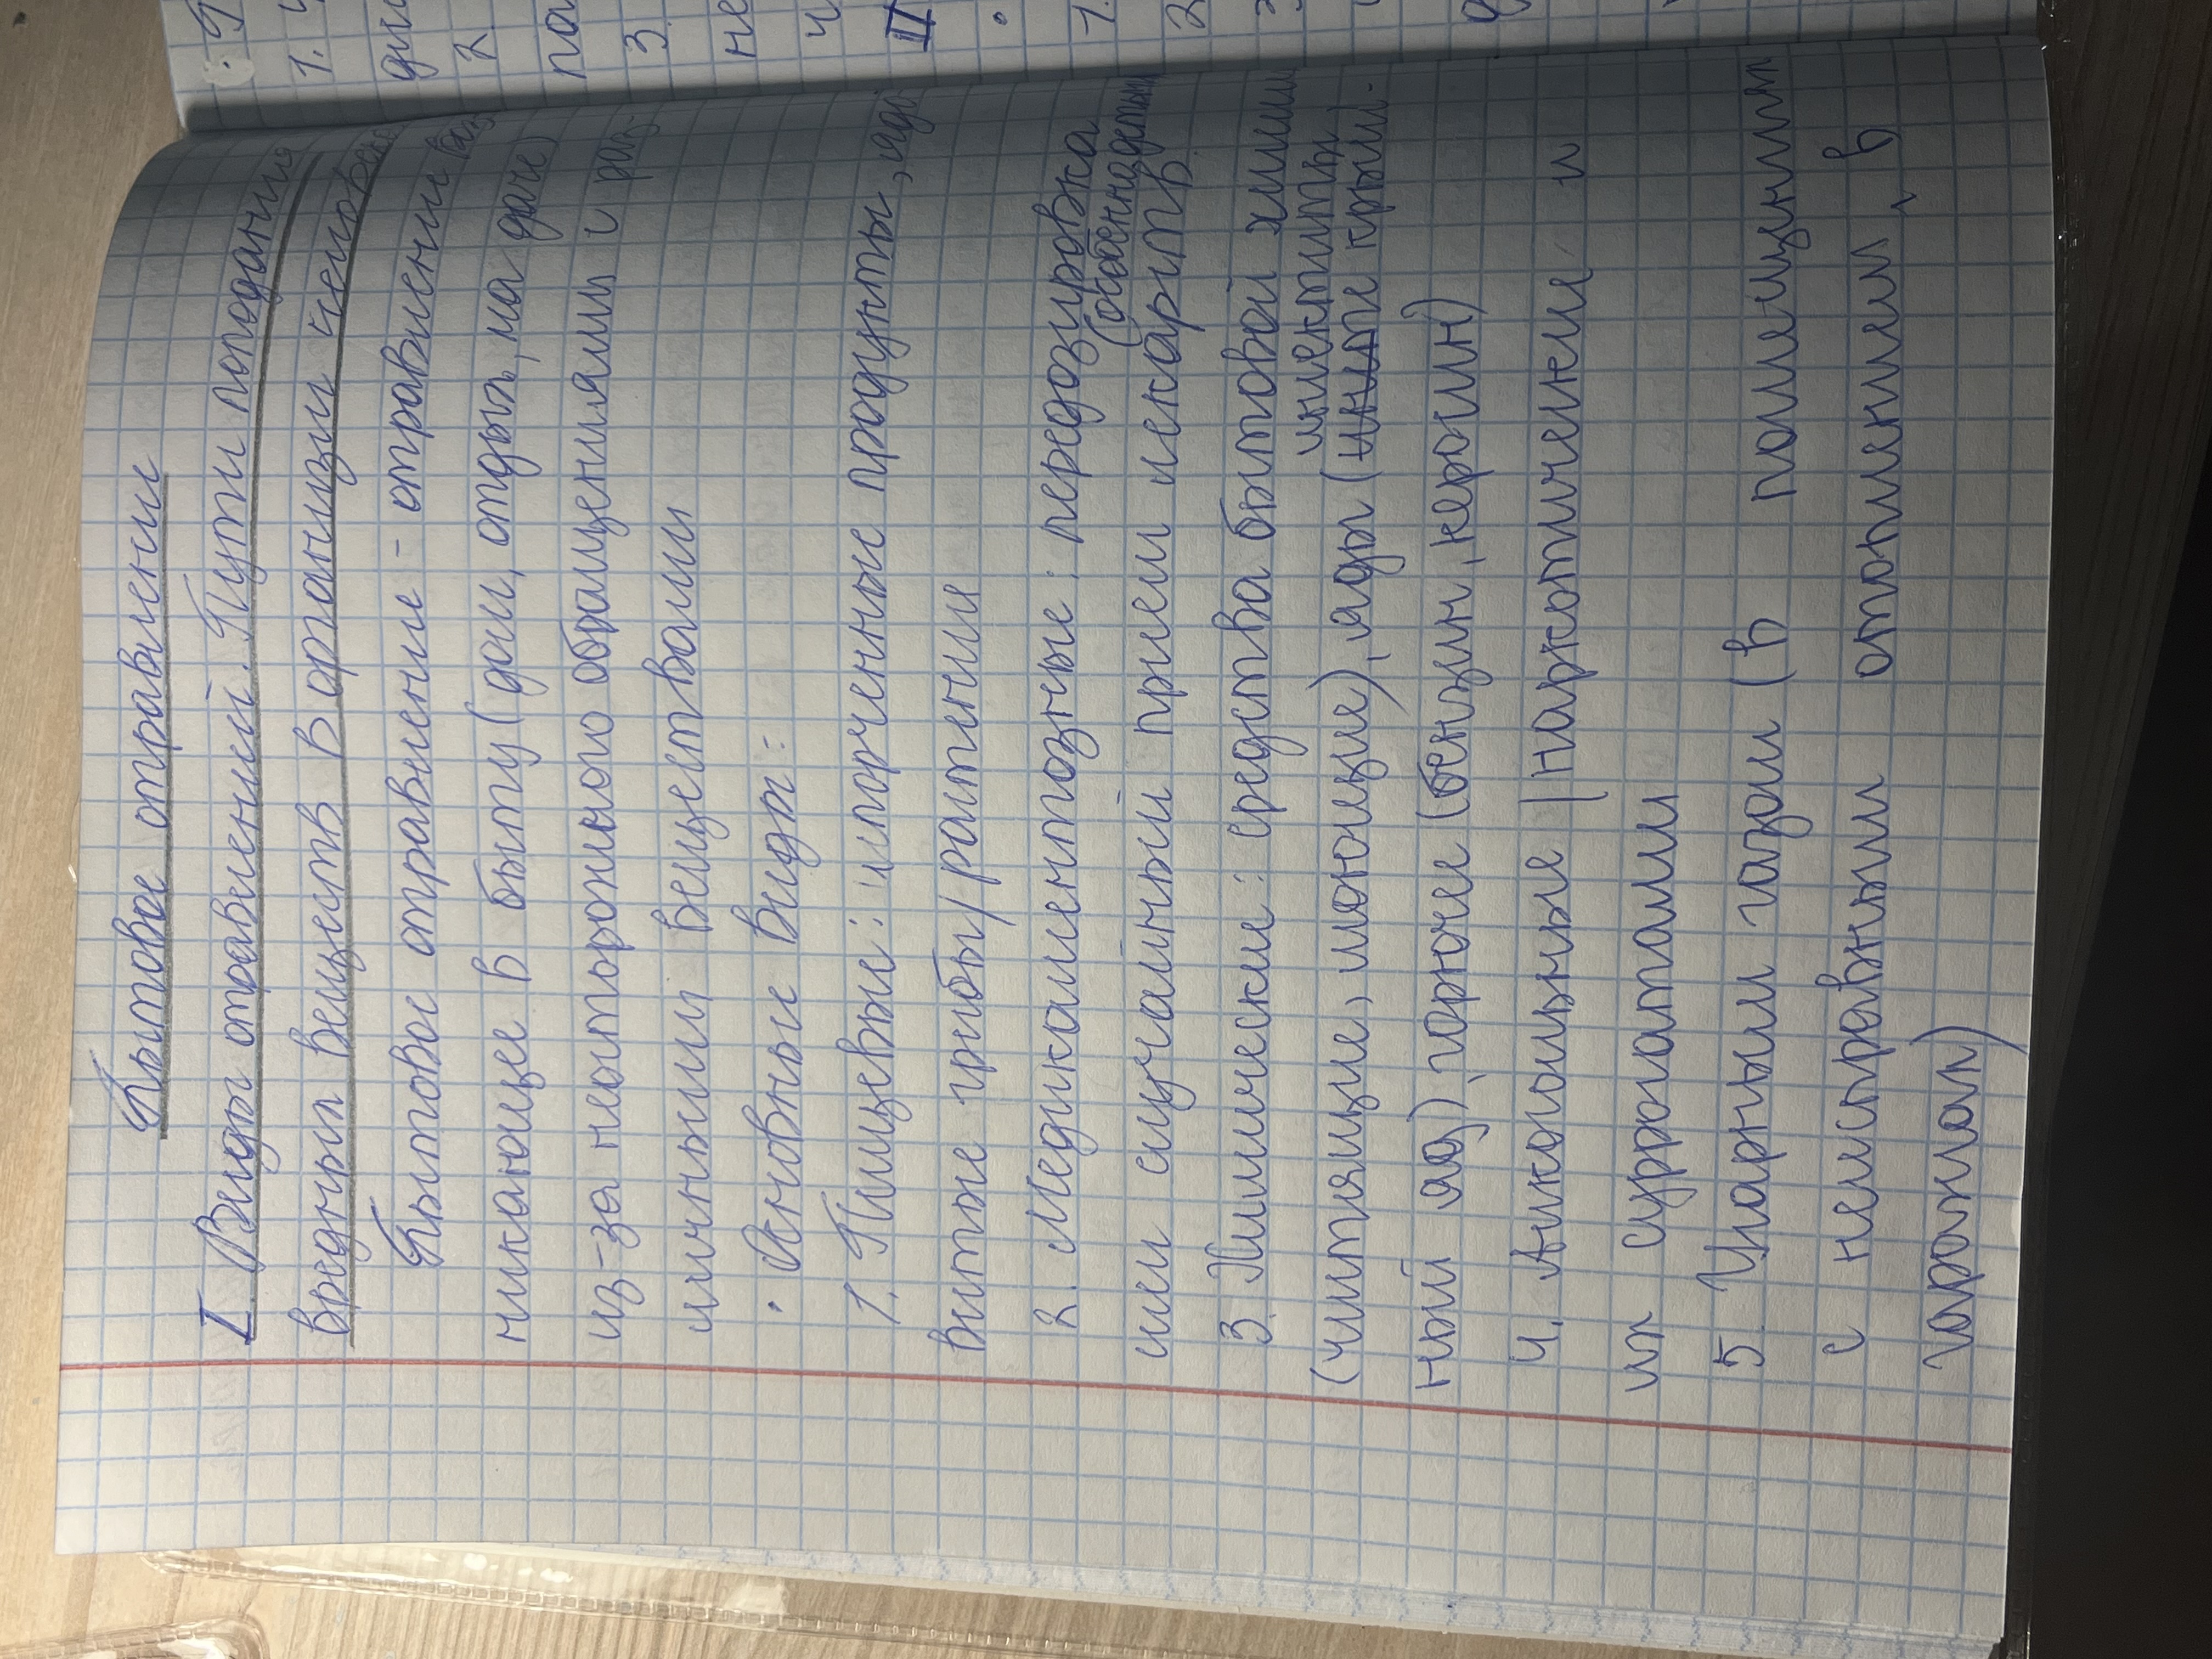 Бытовое отравление
I. Виды отравлений. Пути попадания
вредных веществ в организм человека
Бытовое отравление - отравление, воз-
никающее в быту (дом, отдых, на даче)
из-за неосторожного обращениями с раз-
личными веществами
• Основные виды:
1. Пищевые: испорченные продукты, ядо-
витые грибы/растения
2. Медикаментозные: передозировка
или случайный прием лекарств (особенно детьми)
3. Химические: средства бытовой химии
(чистящие, моющие), яды (инсектициды
ный яд), горючее (бензин, керосин)
4. Алкогольные / наркотические и
их суррогатами
5. Угарным газом (в помещениях
с неисправным отоплением, в
гаражах)
1.
2.
3.
не
II
•
1.
2